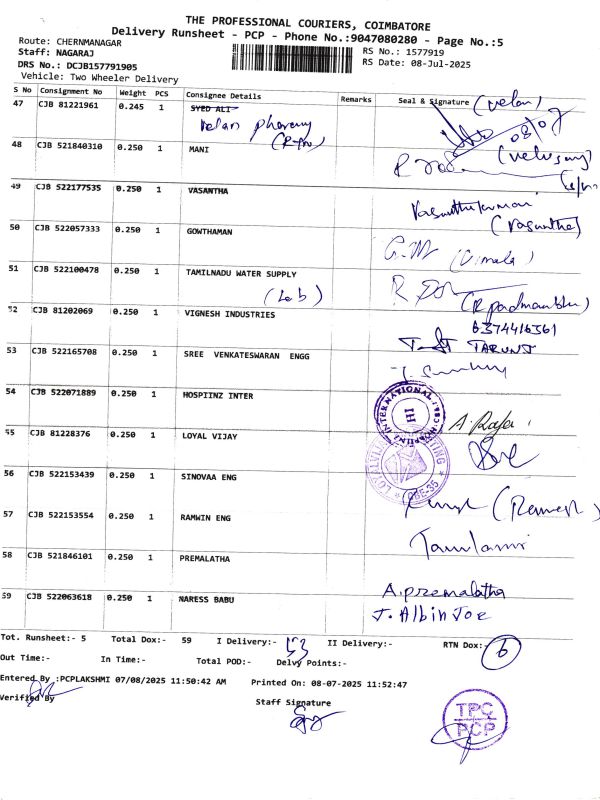 THE PROFESSIONAL COURIERS, COIMBATORE
Delivery Runsheet - PCP - Phone No.:9047080280 - Page No.:5
Route: CHERNMANAGAR
RS No.: 1577919
Staff: NAGARAJ
RS Date: 08-Jul-2025
DRS No.: DCJB157791905
Vehicle: Two Wheeler Delivery
S No Consignment No Weight PCS Consignee Details Remarks Seal & Signature
47 CJB 81221961 0.245 1 SYED ALI (velan)
velan pharmy 08/07
48 CJB 521840310 0.250 1 MANI
49 CJB 522177535 0.250 1 VASANTHA Vasanthakumar
(Vasantha)
50 CJB 522057333 0.250 1 GOWTHAMAN G.M (Vimala)
51 CJB 522100478 0.250 1 TAMILNADU WATER SUPPLY
(Lab) (R.padmanbhu)
52 CJB 81202069 0.250 1 VIGNESH INDUSTRIES 6374416361
TARUNJ
53 CJB 522165708 0.250 1 SREE VENKATESWARAN ENGG
54 CJB 522071889 0.250 1 HOSPIINZ INTER
HOSPIINZ INTERNATIONAL
HI
A. Raja
55 CJB 81228376 0.250 1 LOYAL VIJAY
56 CJB 522153439 0.250 1 SINOVAA ENG
CBE-35
(Ramesh)
57 CJB 522153554 0.250 1 RAMWIN ENG
58 CJB 521846101 0.250 1 PREMALATHA A.premalatha
59 CJB 522063618 0.250 1 NARESS BABU J. Albin Joe
Tot. Runsheet:- 5 Total Dox:- 59 I Delivery:- 53 II Delivery:- RTN Dox:- 6
Out Time:- In Time:- Total POD:- Delvy Points:-
Entered By :PCPLAKSHMI 07/08/2025 11:50:42 AM Printed On: 08-07-2025 11:52:47
Verified By Staff Signature
TPC
PCP